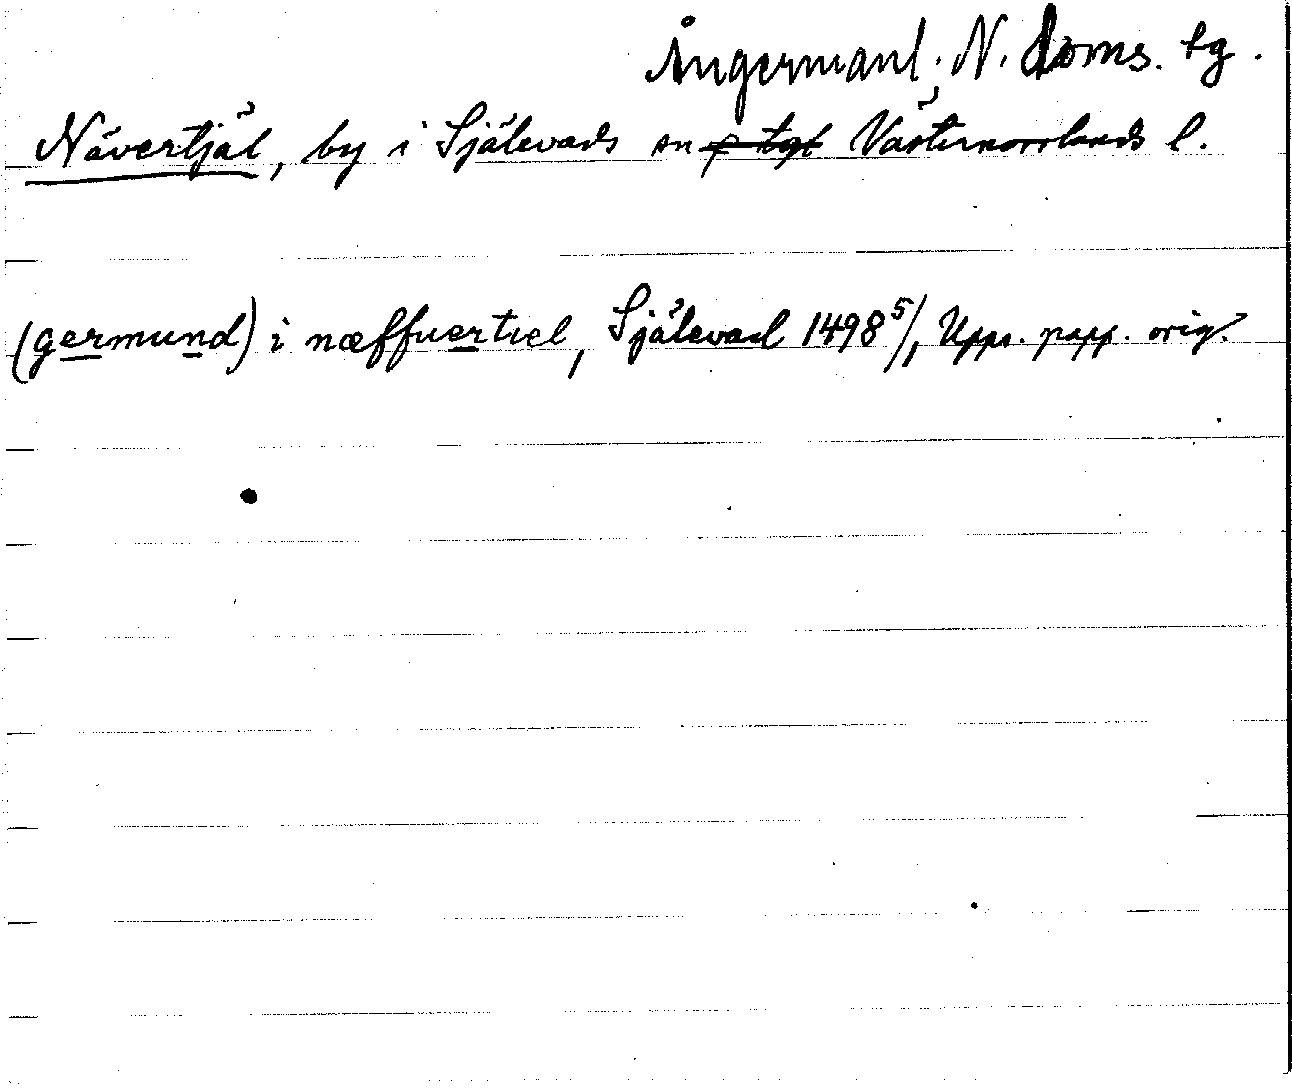 Ångermanl. N. doms. tg.
Nävertjäl, by i Själevads sn Västernorrlands l.
(germund) i næffuertiel, Själevad 1498 5/, Upps. papp. orig.